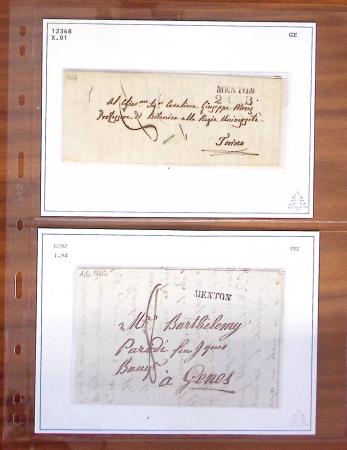 12368
X.01
GE
MENTON
Al Chiar.mo Sig.r Cavaliere Giuseppe Moris
Professore di Botanica alla Regia Università
Torino
6392
1.94
VVZ
MENTON
Mr Barthelemy
Parodi feu Jques
à Genes